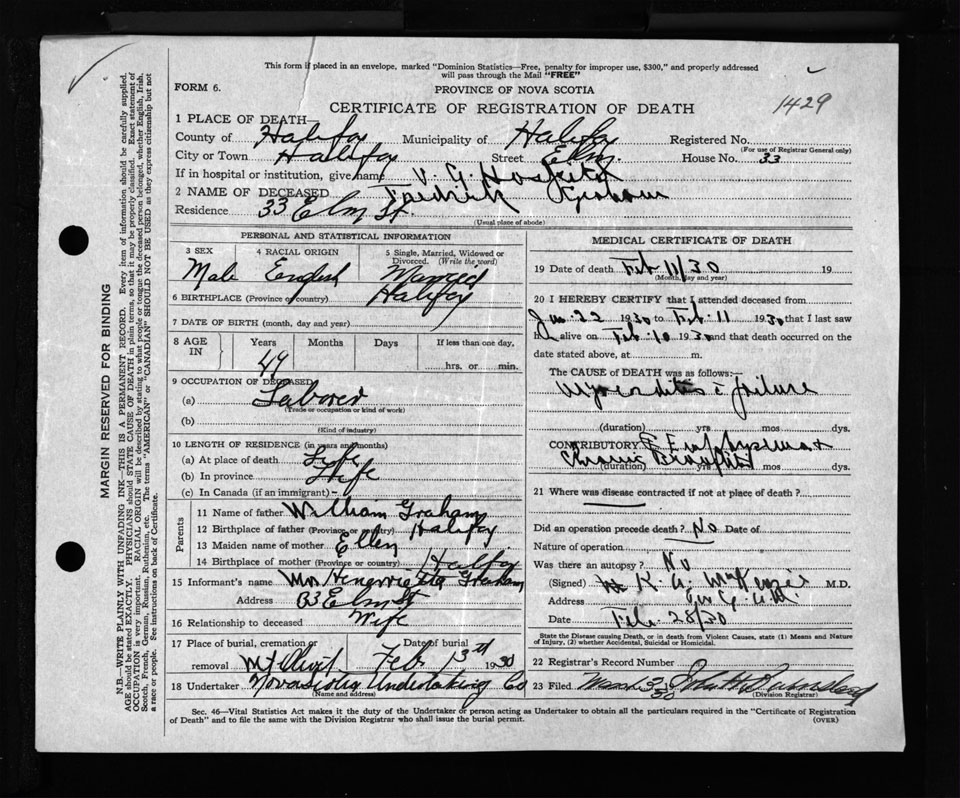 This form if placed in an envelope, marked "Dominion Statistics—Free, penalty for improper use, $300," and properly addressed
will pass through the Mail "FREE"
FORM 6.
PROVINCE OF NOVA SCOTIA
1429
CERTIFICATE OF REGISTRATION OF DEATH
1 PLACE OF DEATH—
County of Halifax Municipality of Halifax Registered No.
(For use of Registrar General only)
City or Town Halifax Street Elm. House No. 33
If in hospital or institution, give name V. G. Hospital
2 NAME OF DECEASED Fredrick Graham
Residence 33 Elm St.
(Usual place of abode)
PERSONAL AND STATISTICAL INFORMATION
3 SEX 4 RACIAL ORIGIN 5 Single, Married, Widowed or
Divorced. (Write the word)
Male English Married
6 BIRTHPLACE (Province or country) Halifax
7 DATE OF BIRTH (month, day and year)
8 AGE IN Years Months Days If less than one day,
49 hrs. or min.
9 OCCUPATION OF DECEASED
(a) Laborer
(Trade or occupation or kind of work)
(b)
(Kind of industry)
10 LENGTH OF RESIDENCE (in years and months)
(a) At place of death Life
(b) In province Life
(c) In Canada (if an immigrant) -
Parents
11 Name of father William Graham
12 Birthplace of father (Province or country) Halifax
13 Maiden name of mother Ellen
14 Birthplace of mother (Province or country) Halifax
15 Informant's name Mrs Graham
Address 33 Elm St
16 Relationship to deceased Wife
17 Place of burial, cremation or Date of burial
removal Mt Olivet Feb 13th 1930
18 Undertaker Novascotia Undertaking Co
(Name and address)
MEDICAL CERTIFICATE OF DEATH
19 Date of death Feb 11/30 19
(Month, day and year)
20 I HEREBY CERTIFY that I attended deceased from
Jan. 22 1930 to Feb. 11 1930 that I last saw
h alive on Feb. 10 1930 and that death occurred on the
date stated above, at m.
The CAUSE OF DEATH was as follows:—
Myocarditis c failure
(duration) yrs mos dys.
CONTRIBUTORY Emphysema &
Chronic Bronchitis
(duration) yrs mos dys.
21 Where was disease contracted if not at place of death?
Did an operation precede death? No Date of
Nature of operation
Was there an autopsy? No
(Signed) K. A. McKenzie M.D.
Address
Date Feb. 28/30
State the Disease causing Death, or in death from Violent Causes, state (1) Means and Nature
of Injury, (2) whether Accidental, Suicidal or Homicidal.
22 Registrar's Record Number
23 Filed March 3 30 John H
(Division Registrar)
Sec. 46—Vital Statistics Act makes it the duty of the Undertaker or person acting as Undertaker to obtain all the particulars required in the "Certificate of Registration
of Death" and to file the same with the Division Registrar who shall issue the burial permit.
(OVER)
MARGIN RESERVED FOR BINDING
N.B.—WRITE PLAINLY WITH UNFADING INK—THIS IS A PERMANENT RECORD. Every item of information should be carefully supplied.
AGE should be stated EXACTLY. PHYSICIANS should STATE CAUSE OF DEATH in plain terms, so that it may be properly classified. Exact statement of
OCCUPATION is very important. RACIAL ORIGIN will be described by stating to what people or tongue the deceased person belonged, whether English, Irish,
Scotch, French, German, Russian, Ruthenian, etc. The terms "AMERICAN" or "CANADIAN" SHOULD NOT BE USED as they express citizenship but not
a race or people. See instructions on back of Certificate.